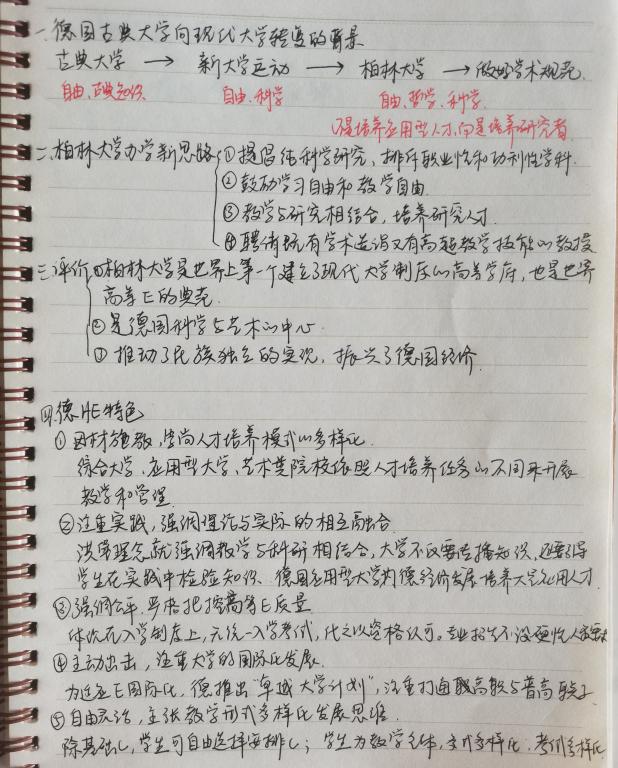 一.德国古典大学向现代大学转变的背景
古典大学 → 新大学运动 → 柏林大学 → 做好学术规范.
自由、古典知识 自由、科学 自由、哲学、科学.
不是培养应用型人才,而是培养研究者.
二.柏林大学办学新思路 ①提倡纯科学研究,排斥职业性和功利性学科.
②鼓励学习自由和教学自由.
③教学与研究相结合,培养研究人才.
④聘请既有学术造诣又有高超教学技能的教授
三.评价 ①柏林大学是世界上第一个建立了现代大学制度的高等学府,也是世界
高等E的典范.
②是德国科学与艺术的中心.
③推动了民族独立的实现,振兴了德国经济.
四.德HE特色
①因材施教,走向人才培养模式的多样化.
综合大学、应用型大学、艺术类院校依照人才培养任务的不同来开展
教学和管理
②注重实践,强调理论与实际的相互融合.
洪堡理念就强调教学与科研相结合,大学不仅要传播知识,还要引导
学生在实践中检验知识. 德国应用型大学为德经济发展培养大量应用人才.
③强调公平,严格把控高等E质量
体现在入学制度上,无统一入学考试,代之以资格认可。专业招生不设硬性人数要求
④主动出击,注重大学的国际化发展.
为适应E国际化,德推出“卓越大学计划”,注重打通职高教与普高教
⑤自由灵活,主张教学形式多样化发展思维.
除基础L,学生可自由选择安排L;学生为教学主体,方式多样化,考试多样化